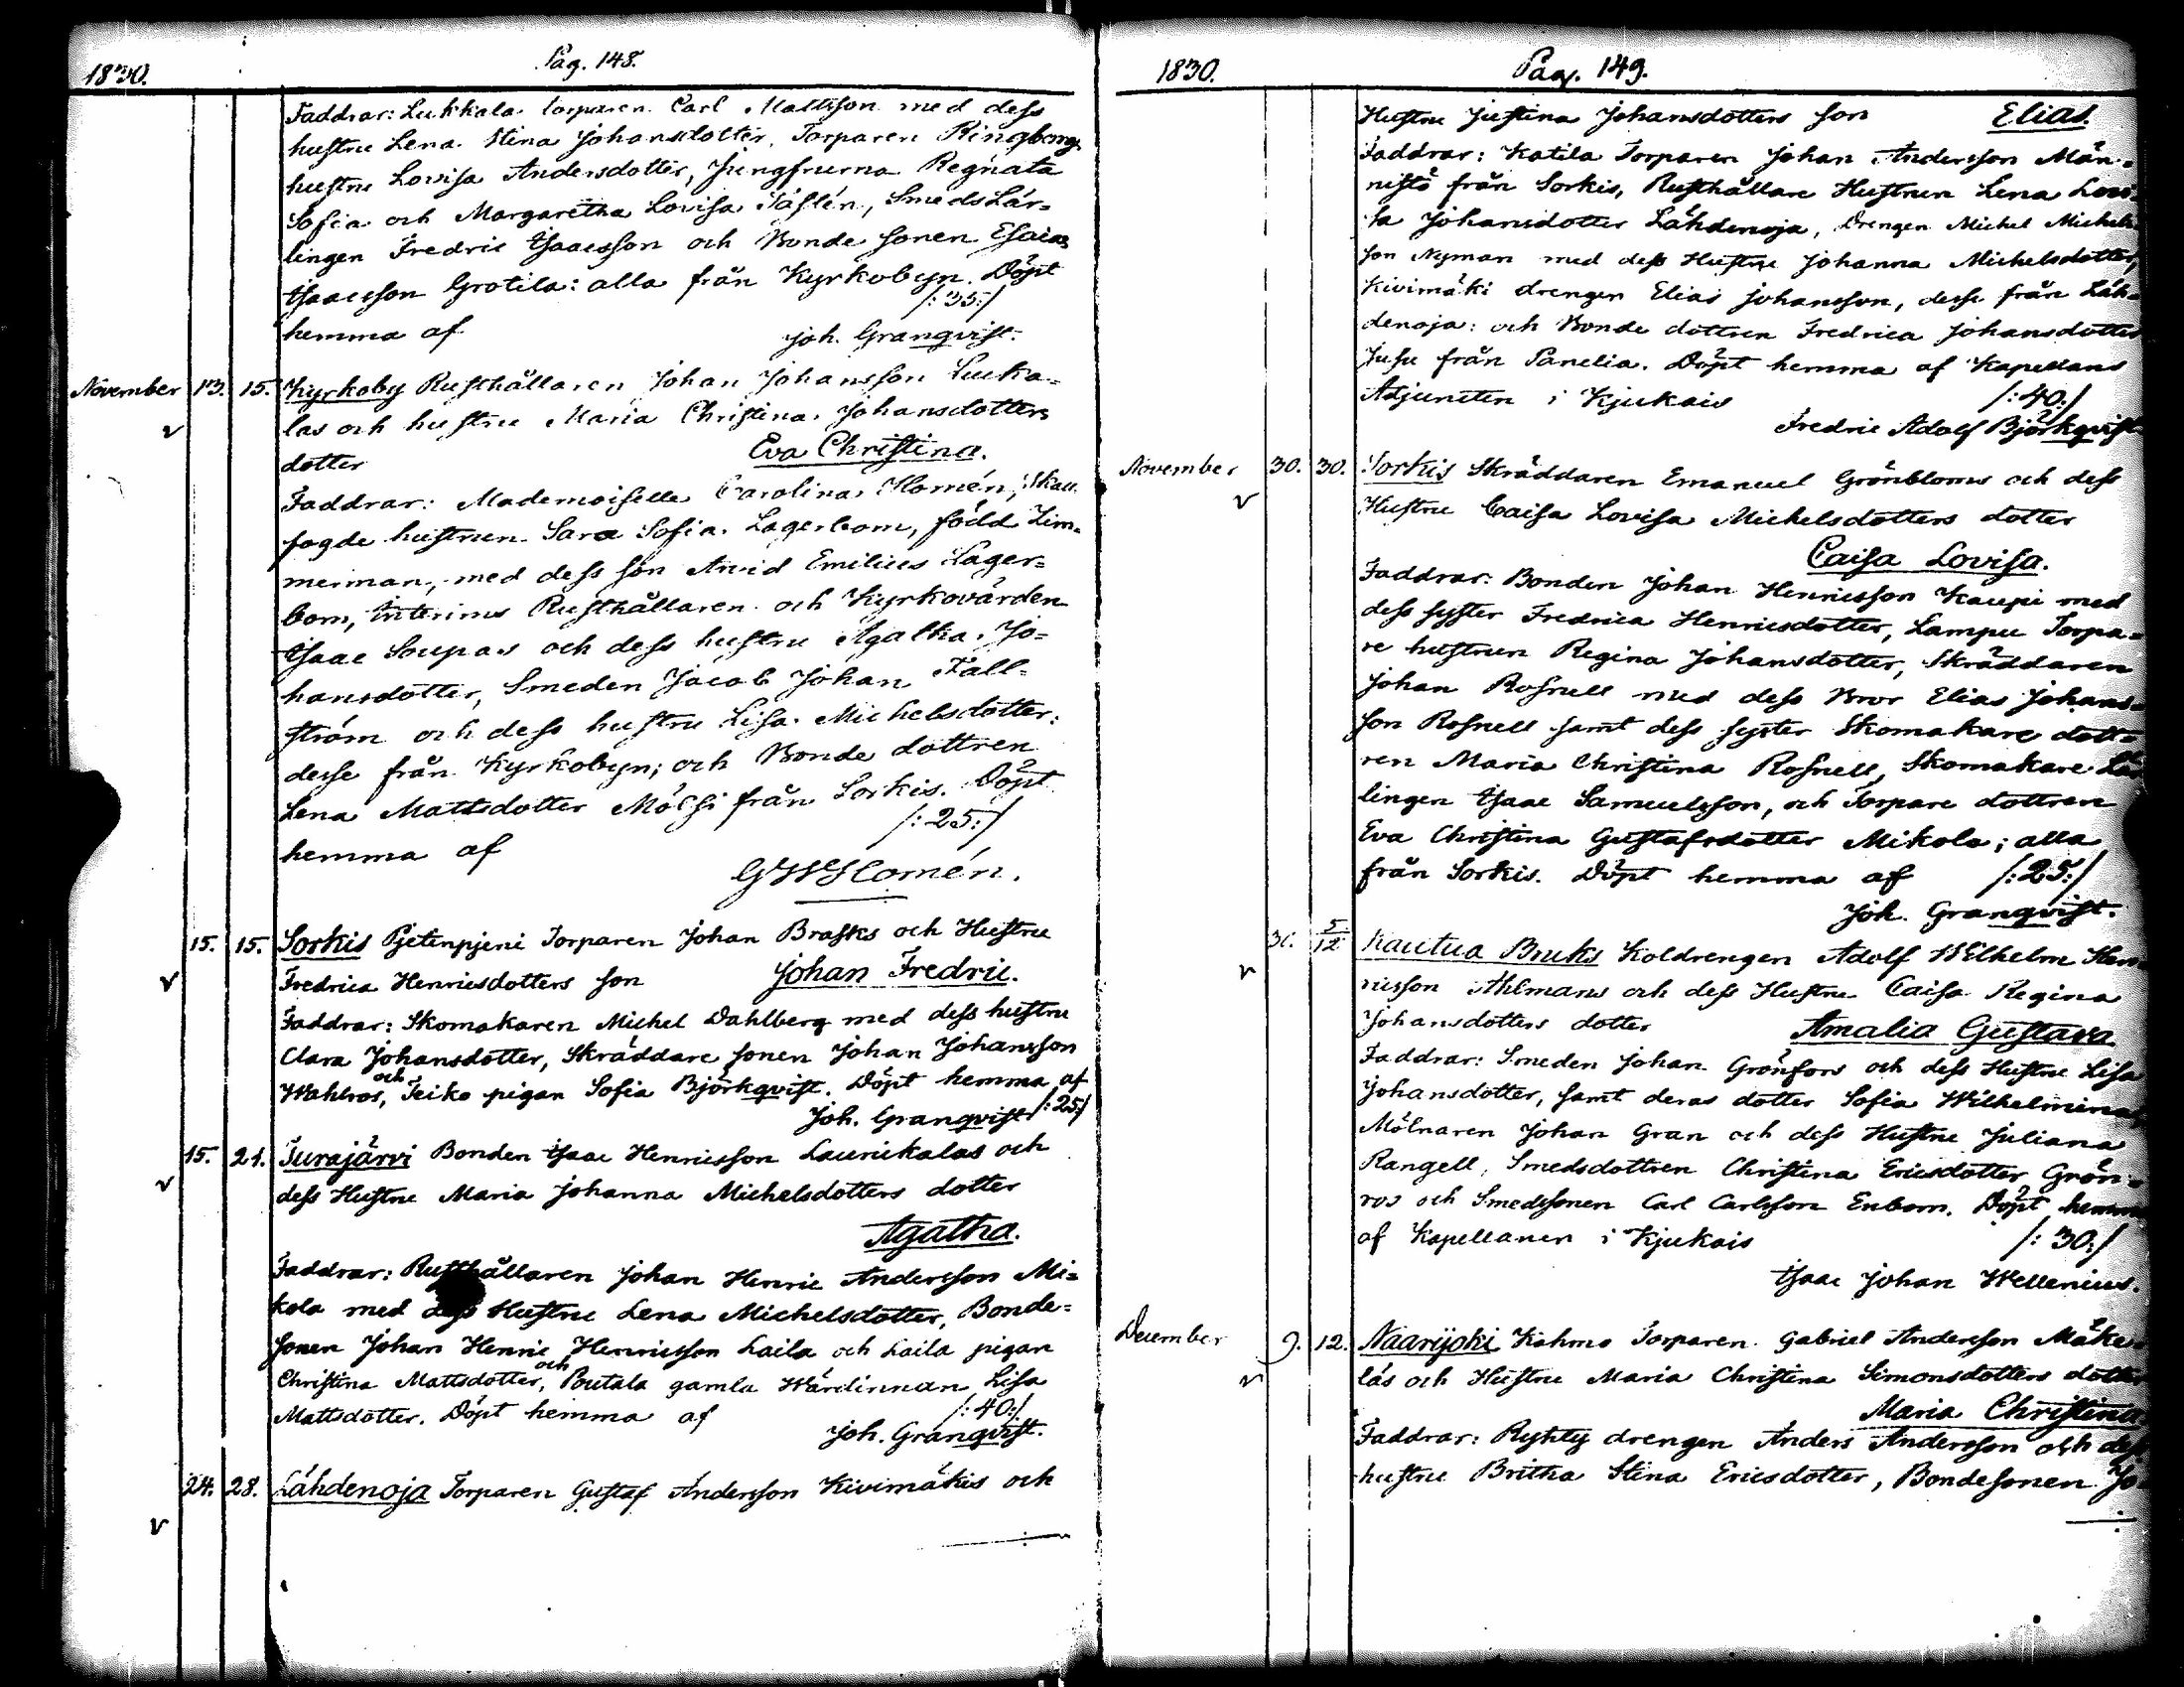 1830.
Pag. 148.
Faddrar: Lukkala torparen Carl Mattsson med dess
hustru Lena Stina Johansdotter, Torparen Ringbergs
hustru Lovisa Andersdotter, Jungfrurna Regnata
Sofia och Margaretha Lovisa Säflén, Smeds Lär=
lingen Fredric Isaacsson och Bonde sonen Esaias
Isaacsson Grotila: alla från Kyrkobyn. Döpt
/:35:/
hemma af
Joh. Granqvist.
November 13. 15. Kyrkoby Rusthållaren Johan Johansson Lucka=
las och hustru Maria Christina Johansdotters
dotter Eva Christina.
Faddrar: Mademoiselle Carolina Homén, Skall
fogde hustrun Sara Sofia Lagerbom, född Zim=
merman, med dess son Arvid Emilius Lager=
bom, Interims Rusthållaren och Kyrkovärden
Isaac Soupas och dess hustru Agatha Jo=
hansdotter, Smeden Jacob Johan Fall=
ström och dess hustru Lisa Michelsdotter:
desse från Kyrkobyn; och Bonde dottren
Lena Mattsdotter Mölsi från Sorkis. Döpt
/:25:/
hemma af
GWHomén.
15. 15. Sorkis Pjetinpjeni Torparen Johan Brasks och Hustru
Fredrica Henricsdotters son Johan Fredric.
Faddrar: Skomakaren Michel Dahlberg med dess hustru
Clara Johansdotter, Skräddare sonen Johan Johansson
Wahlros, och Teiko pigan Sofia Björkqvist. Döpt hemma af
Joh. Granqvist /:25:/
15. 21. Turajärvi Bonden Isaac Henricsson Laurikalas och
dess Hustru Maria Johanna Michelsdotters dotter
Agatha.
Faddrar: Rusthållaren Johan Henric Andersson Mi=
kola med dess Hustru Lena Michelsdotter, Bonde=
sonen Johan Henric Henricsson Laila och Laila pigan
Christina Mattsdotter, och Poutala gamla Wärdinnan Lisa
Mattsdotter. Döpt hemma af /:40:/
Joh. Granqvist.
24. 28. Lähdenoja Torparen Gustaf Andersson Kivimäkis och
1830.
Pag. 149.
Hustru Justina Johansdotters son Elias.
Faddrar: Katila Torparen Johan Andersson Män=
nistö från Sorkis, Rusthållare Hustrun Lena Lovi=
sa Johansdotter Lähdenoja, Drengen Michel Michels=
son Nyman med dess Hustru Johanna Michelsdotter,
Kivimäki drengen Elias Johansson, desse från Läh=
denoja: och Bonde dottren Fredrica Johansdotter
Juse från Panelia. Döpt hemma af Kapellans
Adjuncten i Kjukais /:40:/
Fredric Adolf Björkqvist
November 30. 30. Sorkis Skräddaren Emanuel Grönbloms och dess
Hustru Caisa Lovisa Michelsdotters dotter
Caisa Lovisa.
Faddrar: Bonden Johan Henricsson Kaupi med
dess syster Fredrica Henricsdotter, Lampu Torpa=
re hustrun Regina Johansdotter, Skräddaren
Johan Rosnell med dess Bror Elias Johans=
son Rosnell samt dess syster Skomakare dott=
ren Maria Christina Rosnell, Skomakare Lär
lingen Isaac Samuelsson, och Torpare dottren
Eva Christina Gustafsdotter Mikola; alla
från Sorkis. Döpt hemma af /:25:/
Joh. Granqvist.
30. 5/12 Kautua Bruks Koldrengen Adolf Wilhelm Hen=
ricsson Ahlmans och dess Hustru Caisa Regina
Johansdotters dotter Amalia Gustava.
Faddrar: Smeden Johan Grönfors och dess Hustru Lisa
Johansdotter, samt deras dotter Sofia Wilhelmina,
Mölnaren Johan Gran och dess Hustru Juliana
Rangell, Smedsdottren Christina Ericsdotter Grön=
ros och Smedssonen Carl Carlsson Enbom. Döpt hemma
af Kapellanen i Kjukais /:30:/
Isaac Johan Wellenius.
December 9. 12. Naarijoki Kahmo Torparen Gabriel Andersson Mäke=
läs och Hustru Maria Christina Simonsdotters dotter
Maria Christina
Faddrar: Ryhty drengen Anders Andersson och dess
hustru Britha Stina Ericsdotter, Bondesonen Jo=